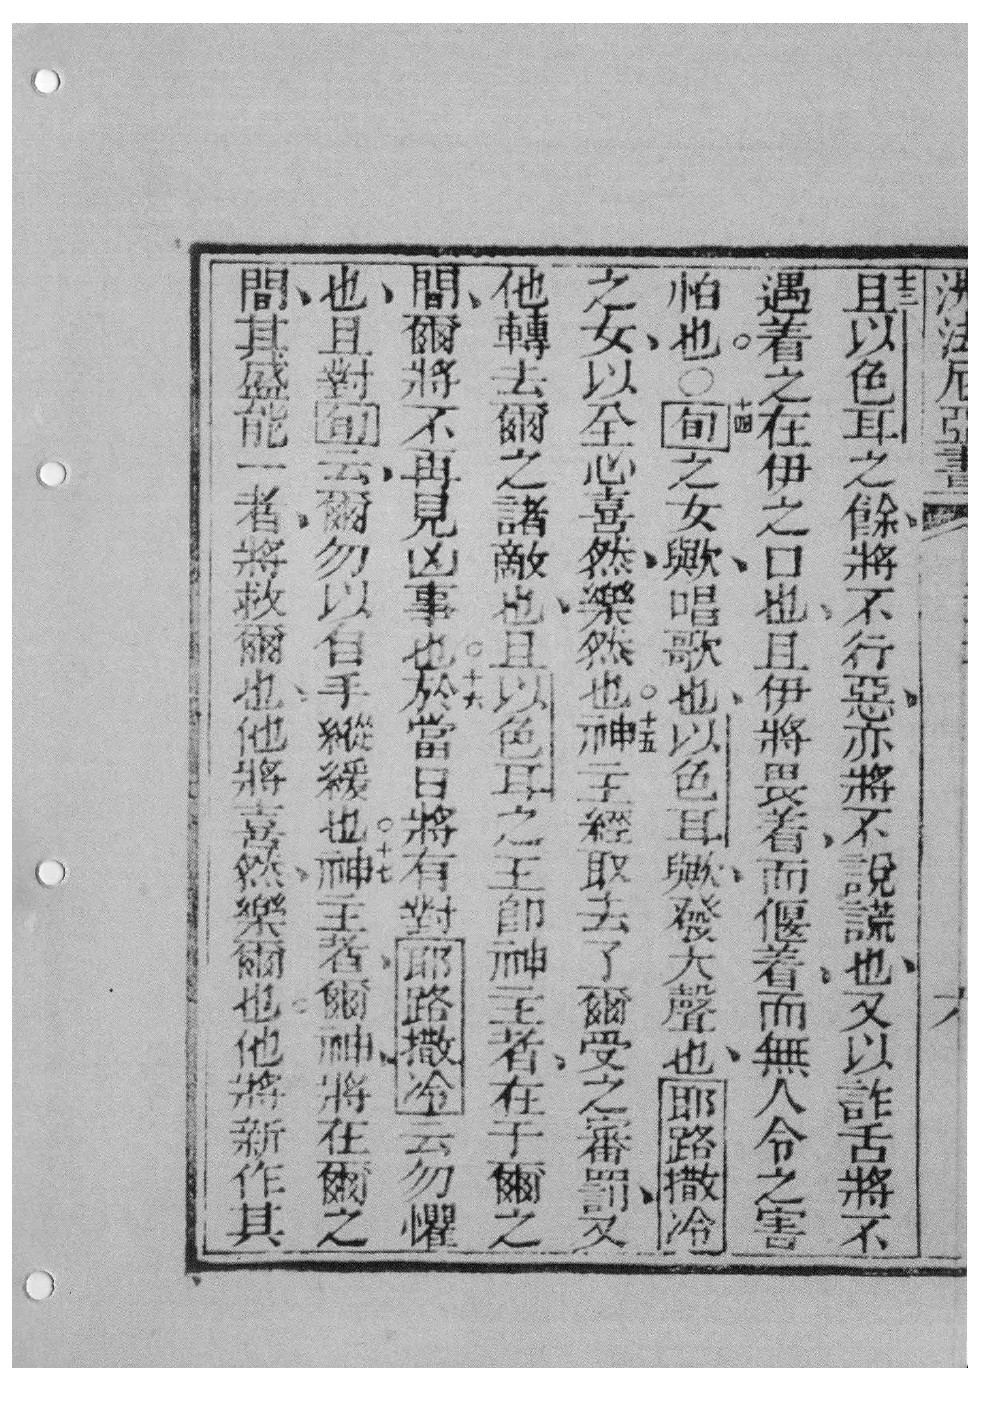 法尼亞書
六
十三且以色耳之餘將不行惡亦將不說謊也又以詐舌將不
遇着之在伊之口也且伊將畏着而偃着而無人令之害
怕也○十四旬之女歟唱歌也以色耳歟發大聲也耶路撒冷
之女以全心喜然樂然也○十五神主經取去了爾受之審罰又
他轉去爾之諸敵也且以色耳之王卽神主者在于爾之
間爾將不再見凶事也○十六於當日將有對耶路撒冷云勿懼
也且對旬云爾勿以自手縱緩也○十七神主者爾神將在爾之
間其盛能一者將救爾也他將喜然樂爾也○他將新作其